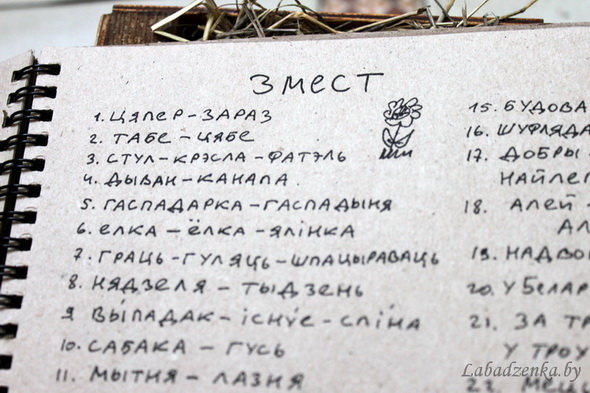 ЗМЕСТ
1. ЦЯПЕР - ЗАРАЗ
2. ТАБЕ - ЦЯБЕ
3. СТУЛ - КРЭСЛА - ФАТЭЛЬ
4. ДЫВАН - КАНАПА
5. ГАСПАДАРКА - ГАСПАДЫНЯ
6. ЕЛКА - ЁЛКА - ЯЛІНКА
7. ГРАЦЬ - ГУЛЯЦЬ - ШПАЦЫРАВАЦЬ
8. НЯДЗЕЛЯ - ТЫДЗЕНЬ
9 ВЫ́ПАДАК - ІСНУ́Е - СПІ́НА
10. САБАКА - ГУСЬ
11. МЫТНЯ - ЛАЗНЯ
15. БУДОВА
16. ШУФЛЯДА
17. ДОБРЫ -
НАЙЛЕ
18. АЛЕЙ -
АЛ
19. НАДВО
20. У БЕЛАР
21. ЗА ТР
У ТРОУ
22. МЕС
Labadzenka.by